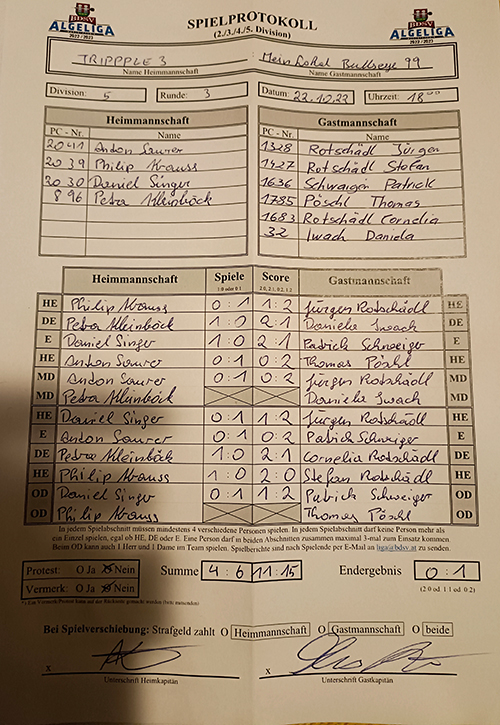 BDSV
ALGELIGA
2022 / 2023
SPIELPROTOKOLL
(2./3./4./5. Division)
BDSV
ALGELIGA
2022 / 2023
TRIPPPLE 3 : Mein Lokal Bullseye 99
Name Heimmannschaft Name Gastmannschaft
Division: 5 Runde: 3 Datum: 22.10.22 Uhrzeit: 18 00
Heimmannschaft Gastmannschaft
PC - Nr. Name PC - Nr. Name
2041 Anton Saurer 1328 Rotschädl Jürgen
2039 Philip Krauss 1427 Rotschädl Stefan
2030 Daniel Singer 1636 Schwaiger Patrick
896 Petra Kleinböck 1785 Pöschl Thomas
1683 Rotschädl Cornelia
32 Iwach Daniela
Heimmannschaft Spiele Score Gastmannschaft
1:0 oder 0:1 2:0, 2:1, 0:2, 1:2
HE Philip Krauss 0 : 1 1 : 2 Jürgen Rotschädl HE
DE Petra Kleinböck 1 : 0 2 : 1 Daniela Iwach DE
E Daniel Singer 1 : 0 2 : 1 Patrick Schweiger E
HE Anton Saurer 0 : 1 0 : 2 Thomas Pöschl HE
MD Anton Saurer 0 : 1 0 : 2 Jürgen Rotschädl MD
MD Petra Kleinböck Daniela Iwach MD
HE Daniel Singer 0 : 1 1 : 2 Jürgen Rotschädl HE
E Anton Saurer 0 : 1 0 : 2 Patrick Schweiger E
DE Petra Kleinböck 1 : 0 2 : 1 Cornelia Rotschädl DE
HE Philip Krauss 1 : 0 2 : 0 Stefan Rotschädl HE
OD Daniel Singer 0 : 1 1 : 2 Patrick Schweiger OD
OD Philip Krauss Thomas Pöschl OD
In jedem Spielabschnitt müssen mindestens 4 verschiedene Personen spielen. In jedem Spielabschnitt darf keine Person mehr als
ein Einzel spielen, egal ob HE, DE oder E. Eine Person darf in beiden Abschnitten zusammen maximal 3-mal zum Einsatz kommen.
Beim OD kann auch 1 Herr und 1 Dame im Team spielen. Spielberichte sind nach Spielende per E-Mail an liga@bdsv.at zu senden.
Protest: O Ja O Nein Summe 4 : 6 11 : 15 Endergebnis 0 : 1
Vermerk: O Ja O Nein (2:0 od. 1:1 od. 0:2)
Bei Spielverschiebung: Strafgeld zahlt O Heimmannschaft O Gastmannschaft O beide
x x
Unterschrift Heimkapitän Unterschrift Gastkapitän